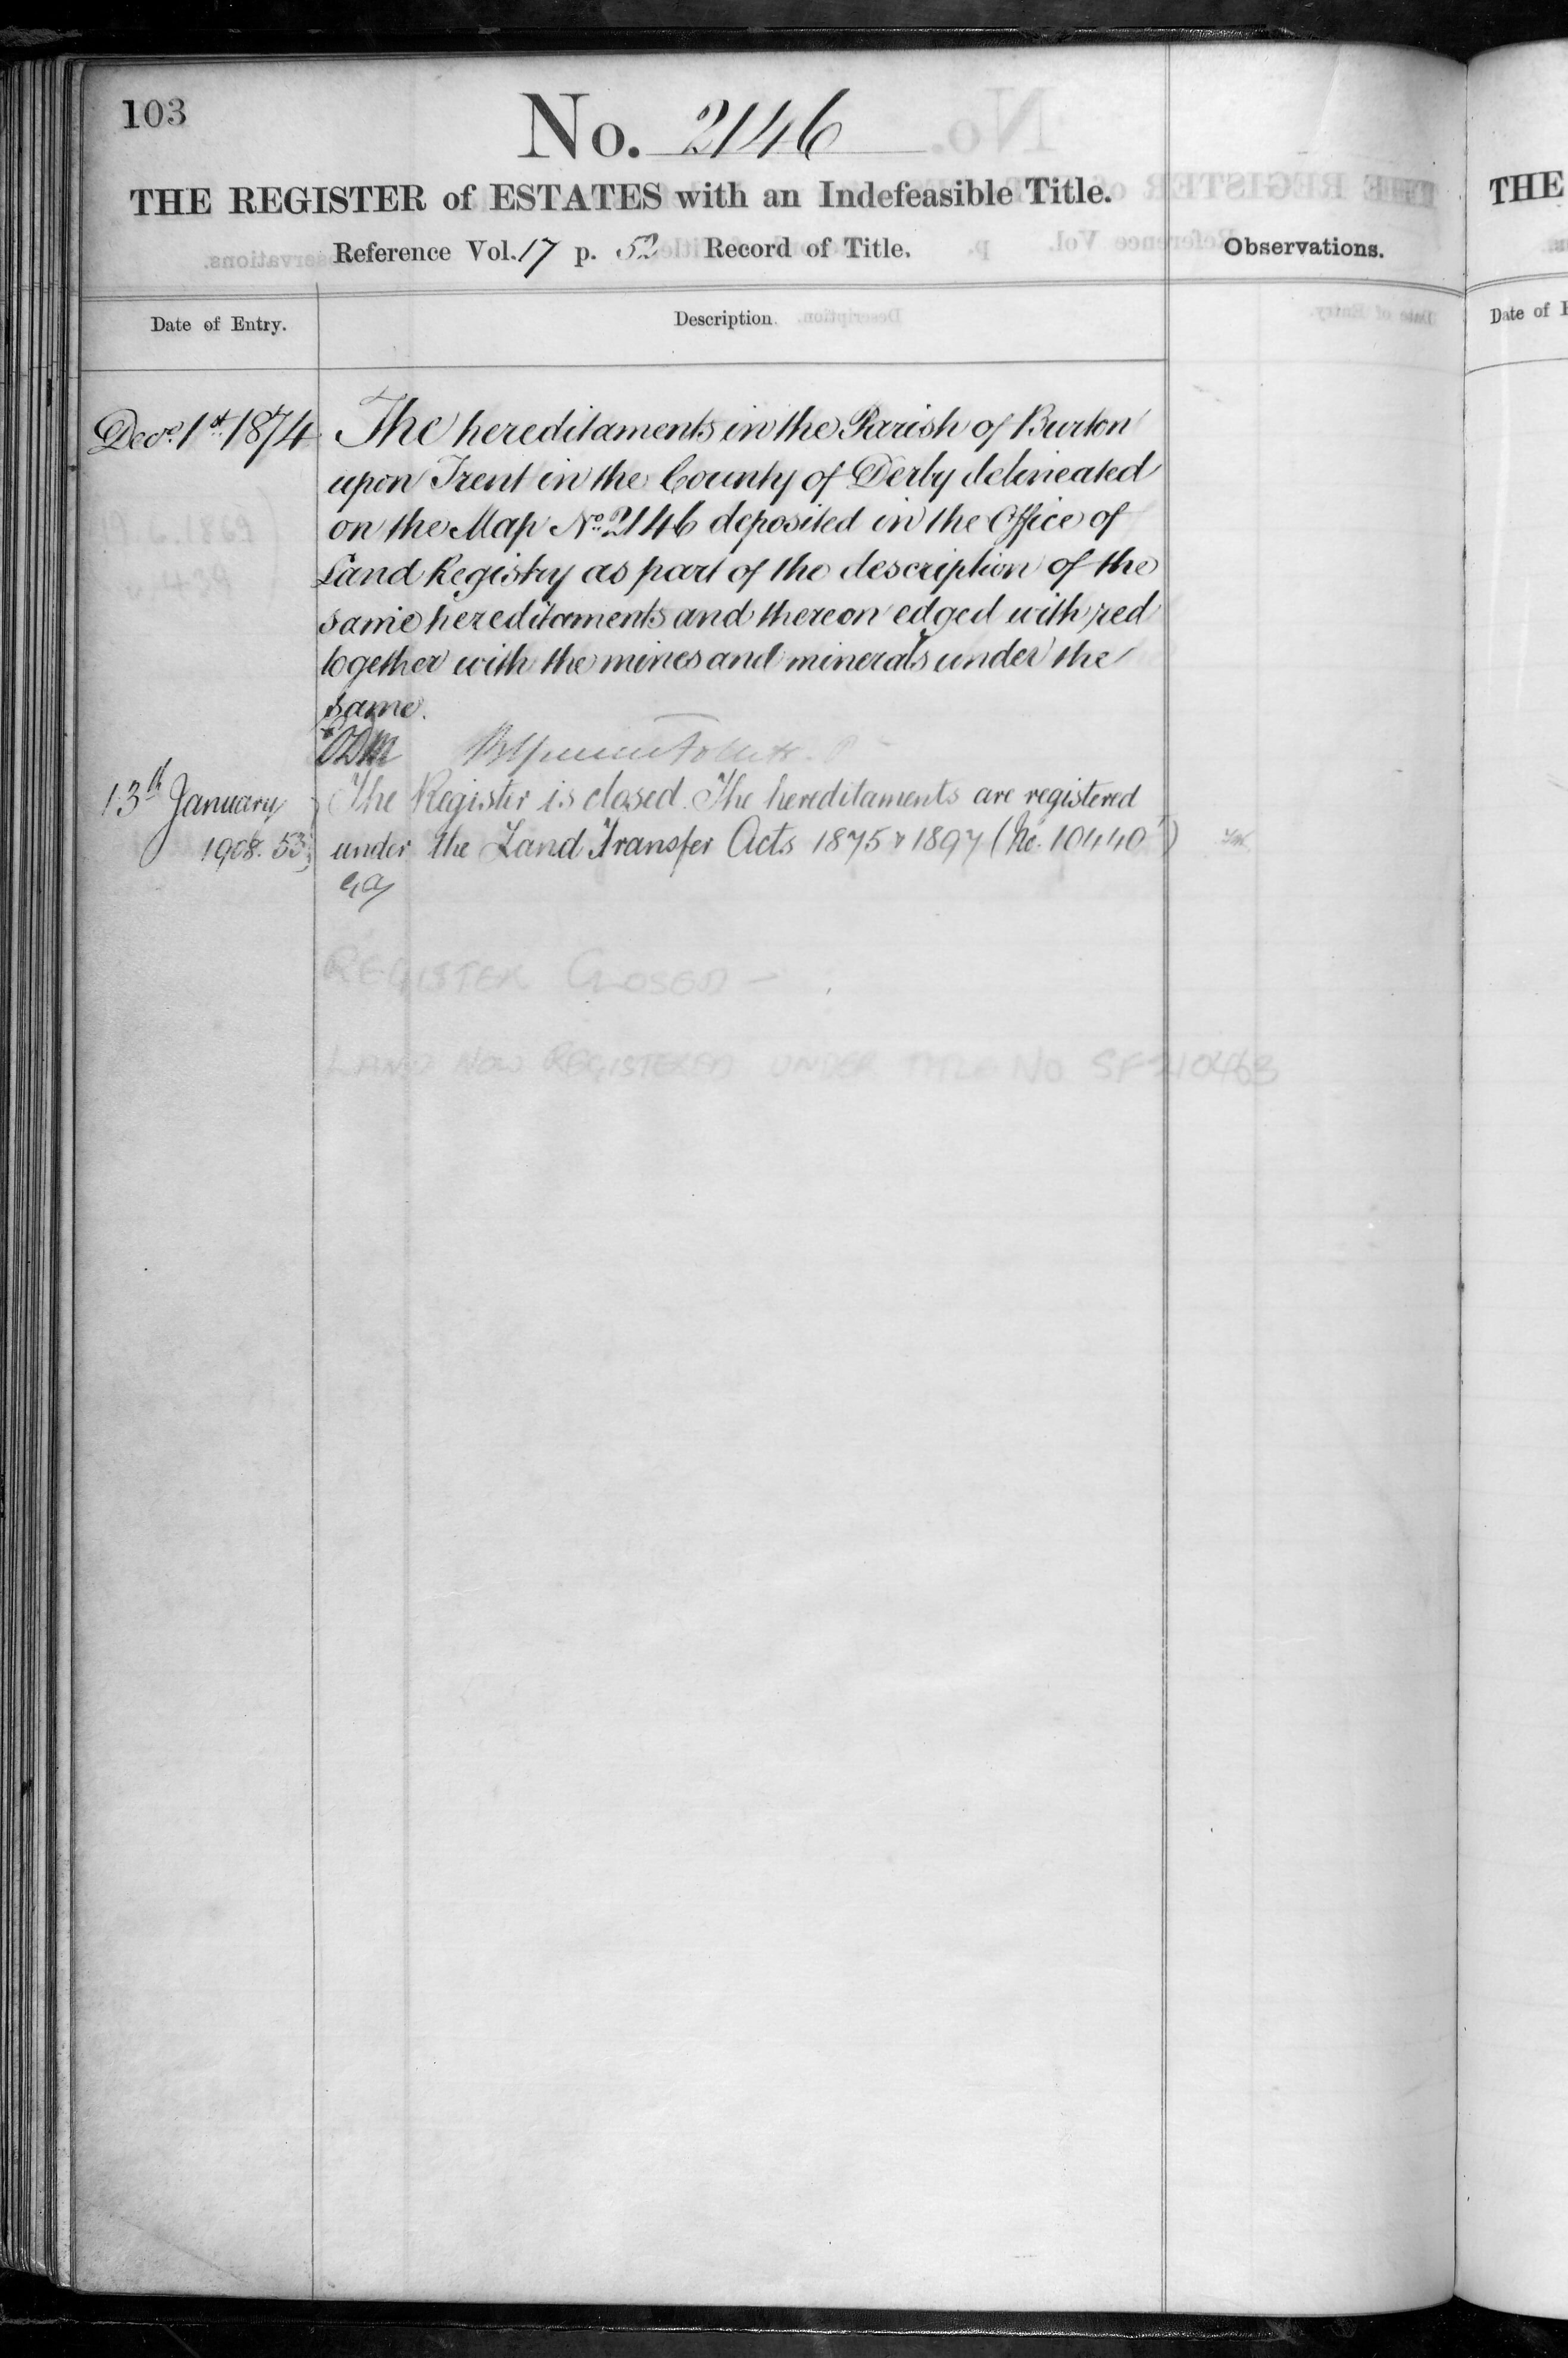 103
No. 2146
THE REGISTER of ESTATES with an Indefeasible Title.
Reference Vol. 17 p. 52 Record of Title.
Observations.
Date of Entry.
Description.
Decr. 1st 1874
The hereditaments in the Parish of Burton
upon Trent in the County of Derby delineated
on the Map No. 2146 deposited in the Office of
Land Registry as part of the description of the
same hereditaments and thereon edged with red
together with the mines and minerals under the
same.
13th January
1908. 53
The Register is closed. The hereditaments are registered
under the Land Transfer Acts 1875 & 1897 (No. 10440)
REGISTER CLOSED -
LAND NOW REGISTERED UNDER TITLE NO SF210463
THE
Date of